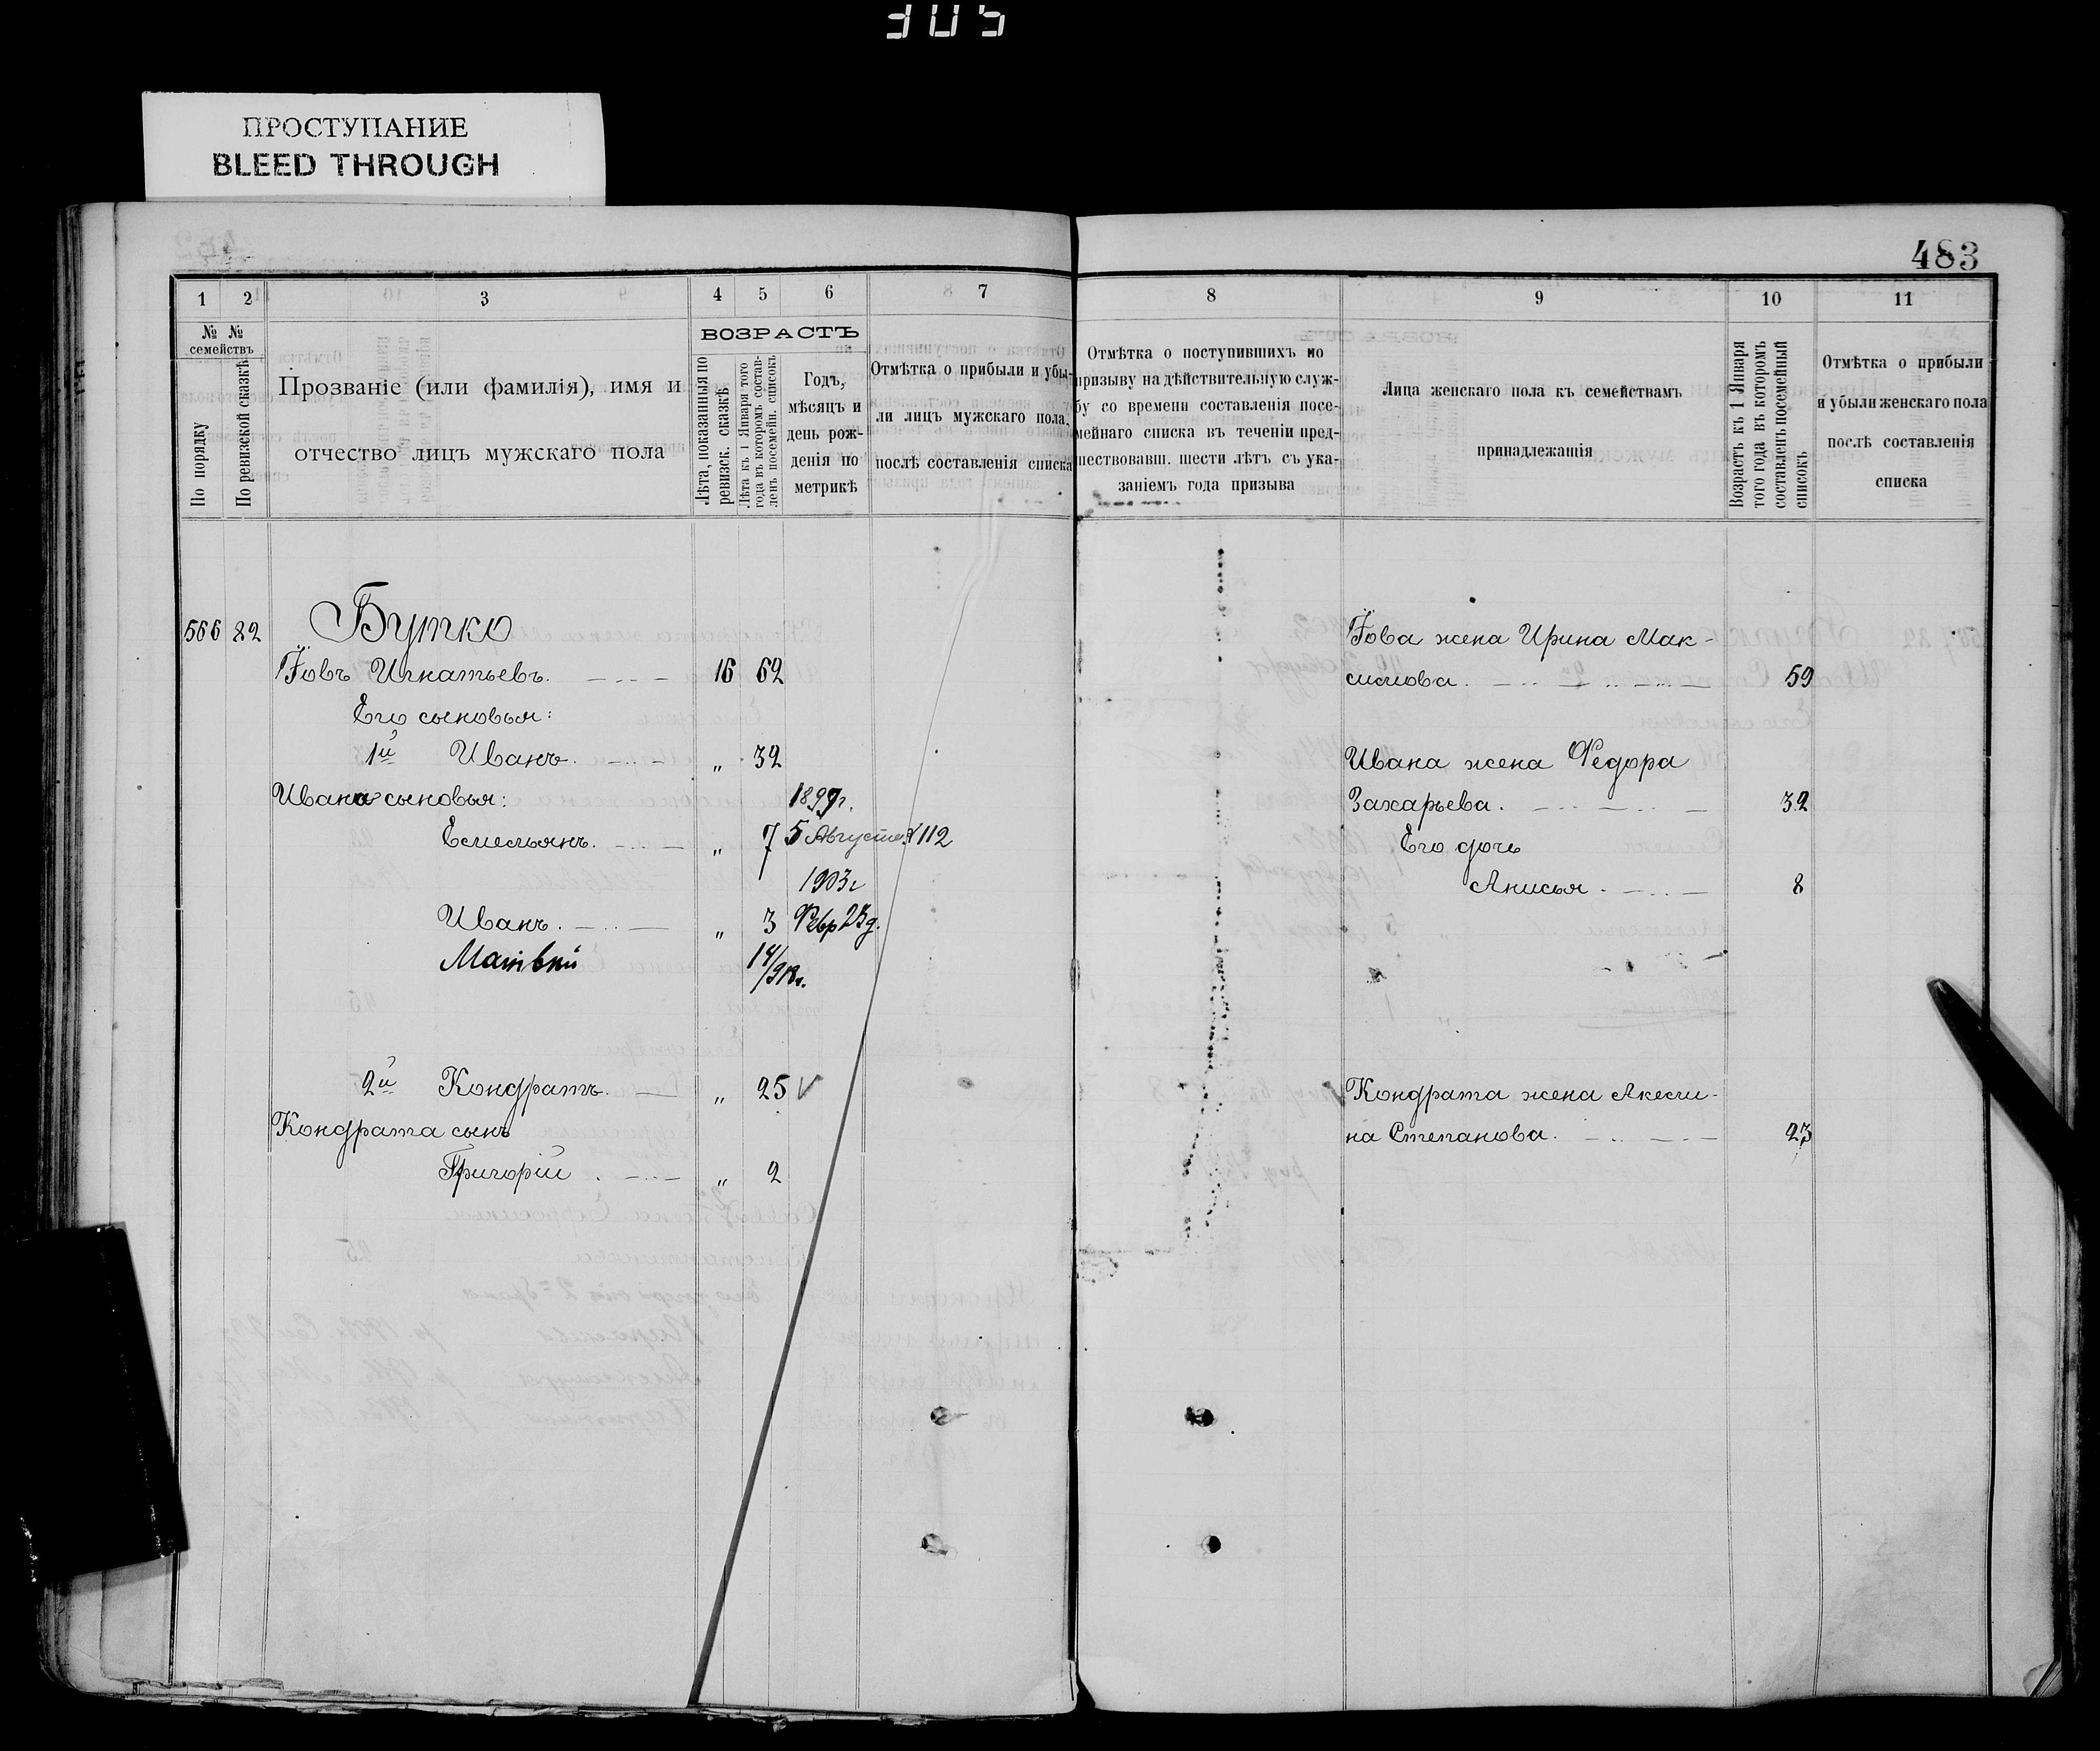 305
ПРОСТУПАНИЕ
BLEED THROUGH
483
1 2 3 4 5 6 7
№ № семействъ
По порядку
По ревизской сказкѣ
Прозваніе (или фамилія), имя и
отчество лицъ мужскаго пола
ВОЗРАСТЪ
Лѣта, показанныя по
ревизск. сказкѣ
Лѣта къ 1 Января того
года въ которомъ состав-
ленъ посемейн. списокъ
Годъ,
мѣсяцъ и
день рож-
денія по
метрикѣ
Отмѣтка о прибыли и убы-
ли лицъ мужскаго пола,
послѣ составленія списка
8 9 10 11
Отмѣтка о поступившихъ по
призыву на дѣйствительную служ-
бу со времени составленія посе-
мейнаго списка въ теченіи пред-
шествовавш. шести лѣтъ съ ука-
заніемъ года призыва
Лица женскаго пола къ семействамъ
принадлежащія
Возрастъ къ 1 Января
того года въ которомъ
составленъ посемейный
списокъ
Отмѣтка о прибыли
и убыли женскаго пола
послѣ составленія
списка
566 82 Бутко
Іовъ Игнатьевъ. 16 62
Его сыновья:
1й Иванъ. „ 32
Ивана сыновья: 1899г.
Емельянъ. „ 7 5 Августа 112
1903г
Иванъ. „ 3 Февр 23д.
Матвѣй 14/918г.
2й Кондратъ. „ 25 V
Кондрата сынъ
Григорій. „ 2
Іова жена Ирина Мак-
симова. 59
Ивана жена Федора
Захарьева. 32
Его дочь
Анисья. 8
Кондрата жена Акели-
на Степанова. 23